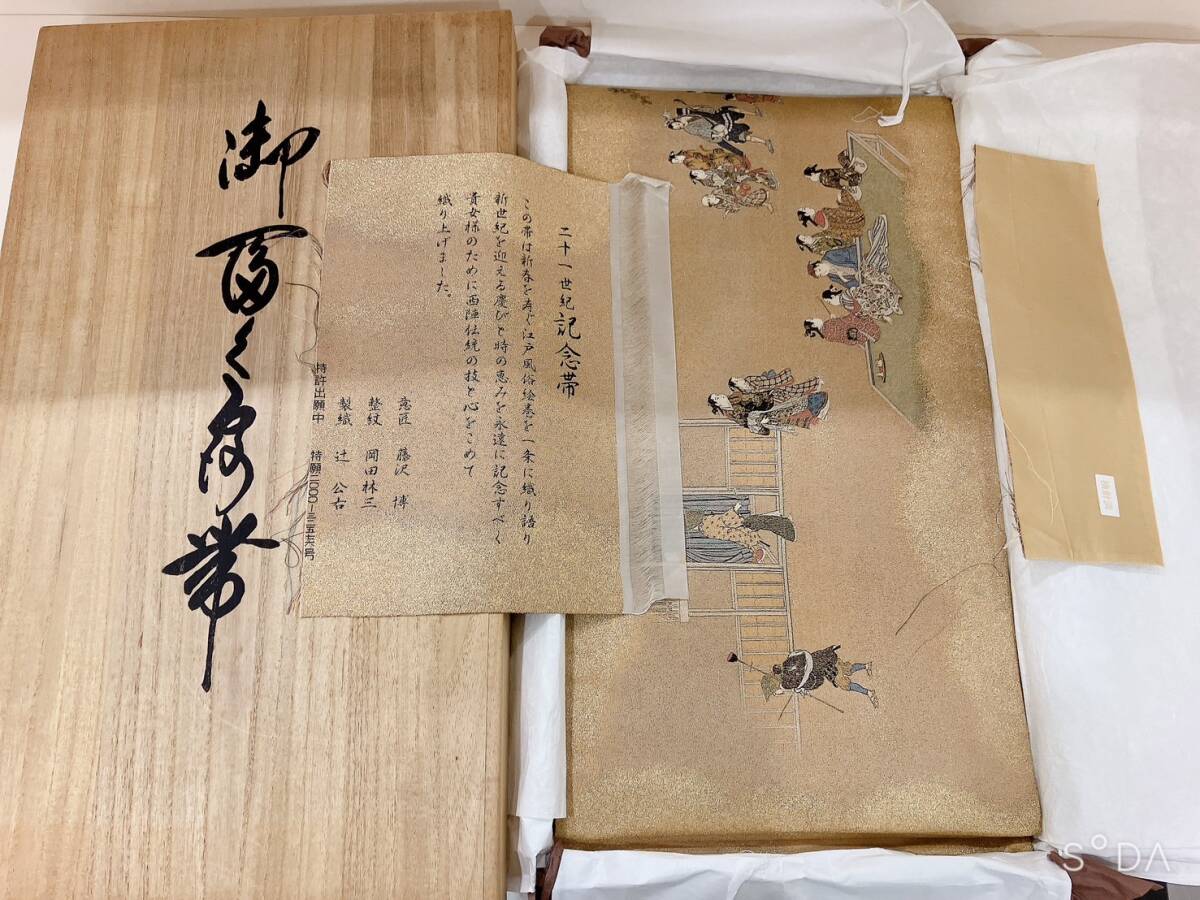 御富くろ帯
二十一世紀記念帯
この帯は新春を寿ぐ江戸風俗絵巻を一条に織り語り
新世紀を迎える慶びと時の恵みを永遠に記念すべく
貴女様のために西陣伝統の技と心をこめて
織り上げました。
意匠 藤沢 博
整紋 岡田林三
製織 辻 公古
特許出願中 特願二〇〇〇-
SODA